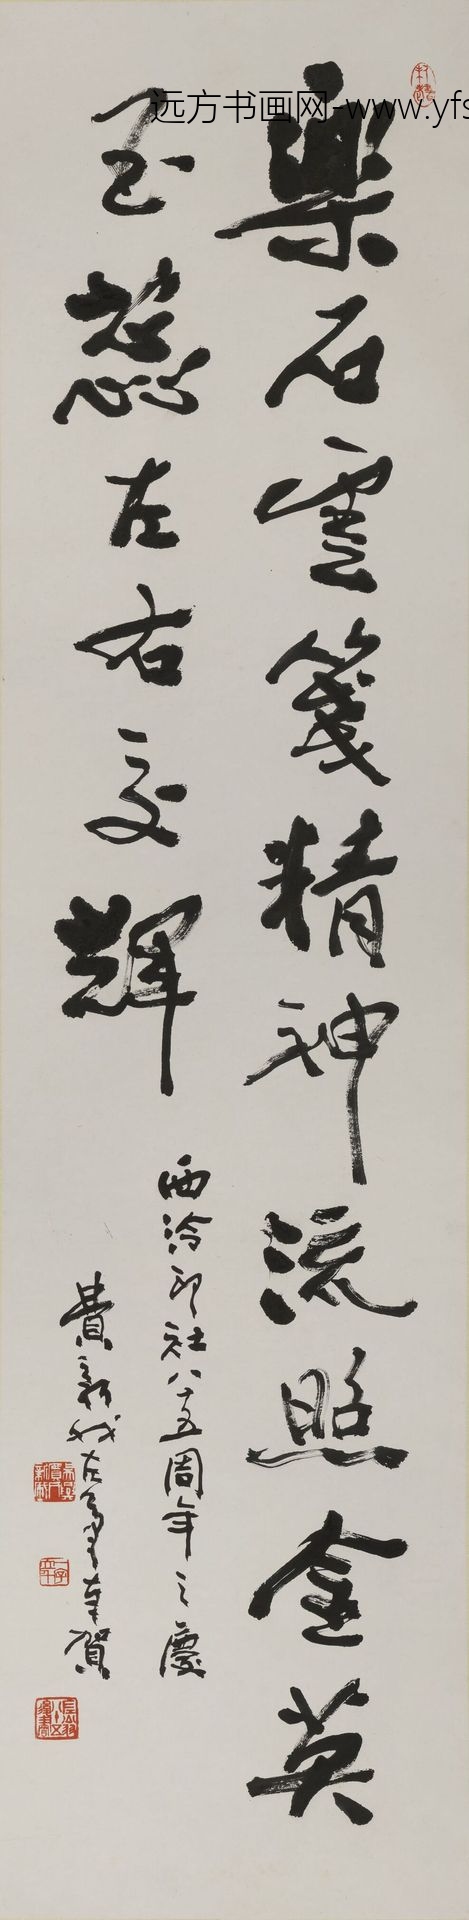 远方书画网-www.yfs
樂石雲箋精神流照金英
玉蕊左右交輝
西泠印社八十五周年之慶
費新我左筆奉賀